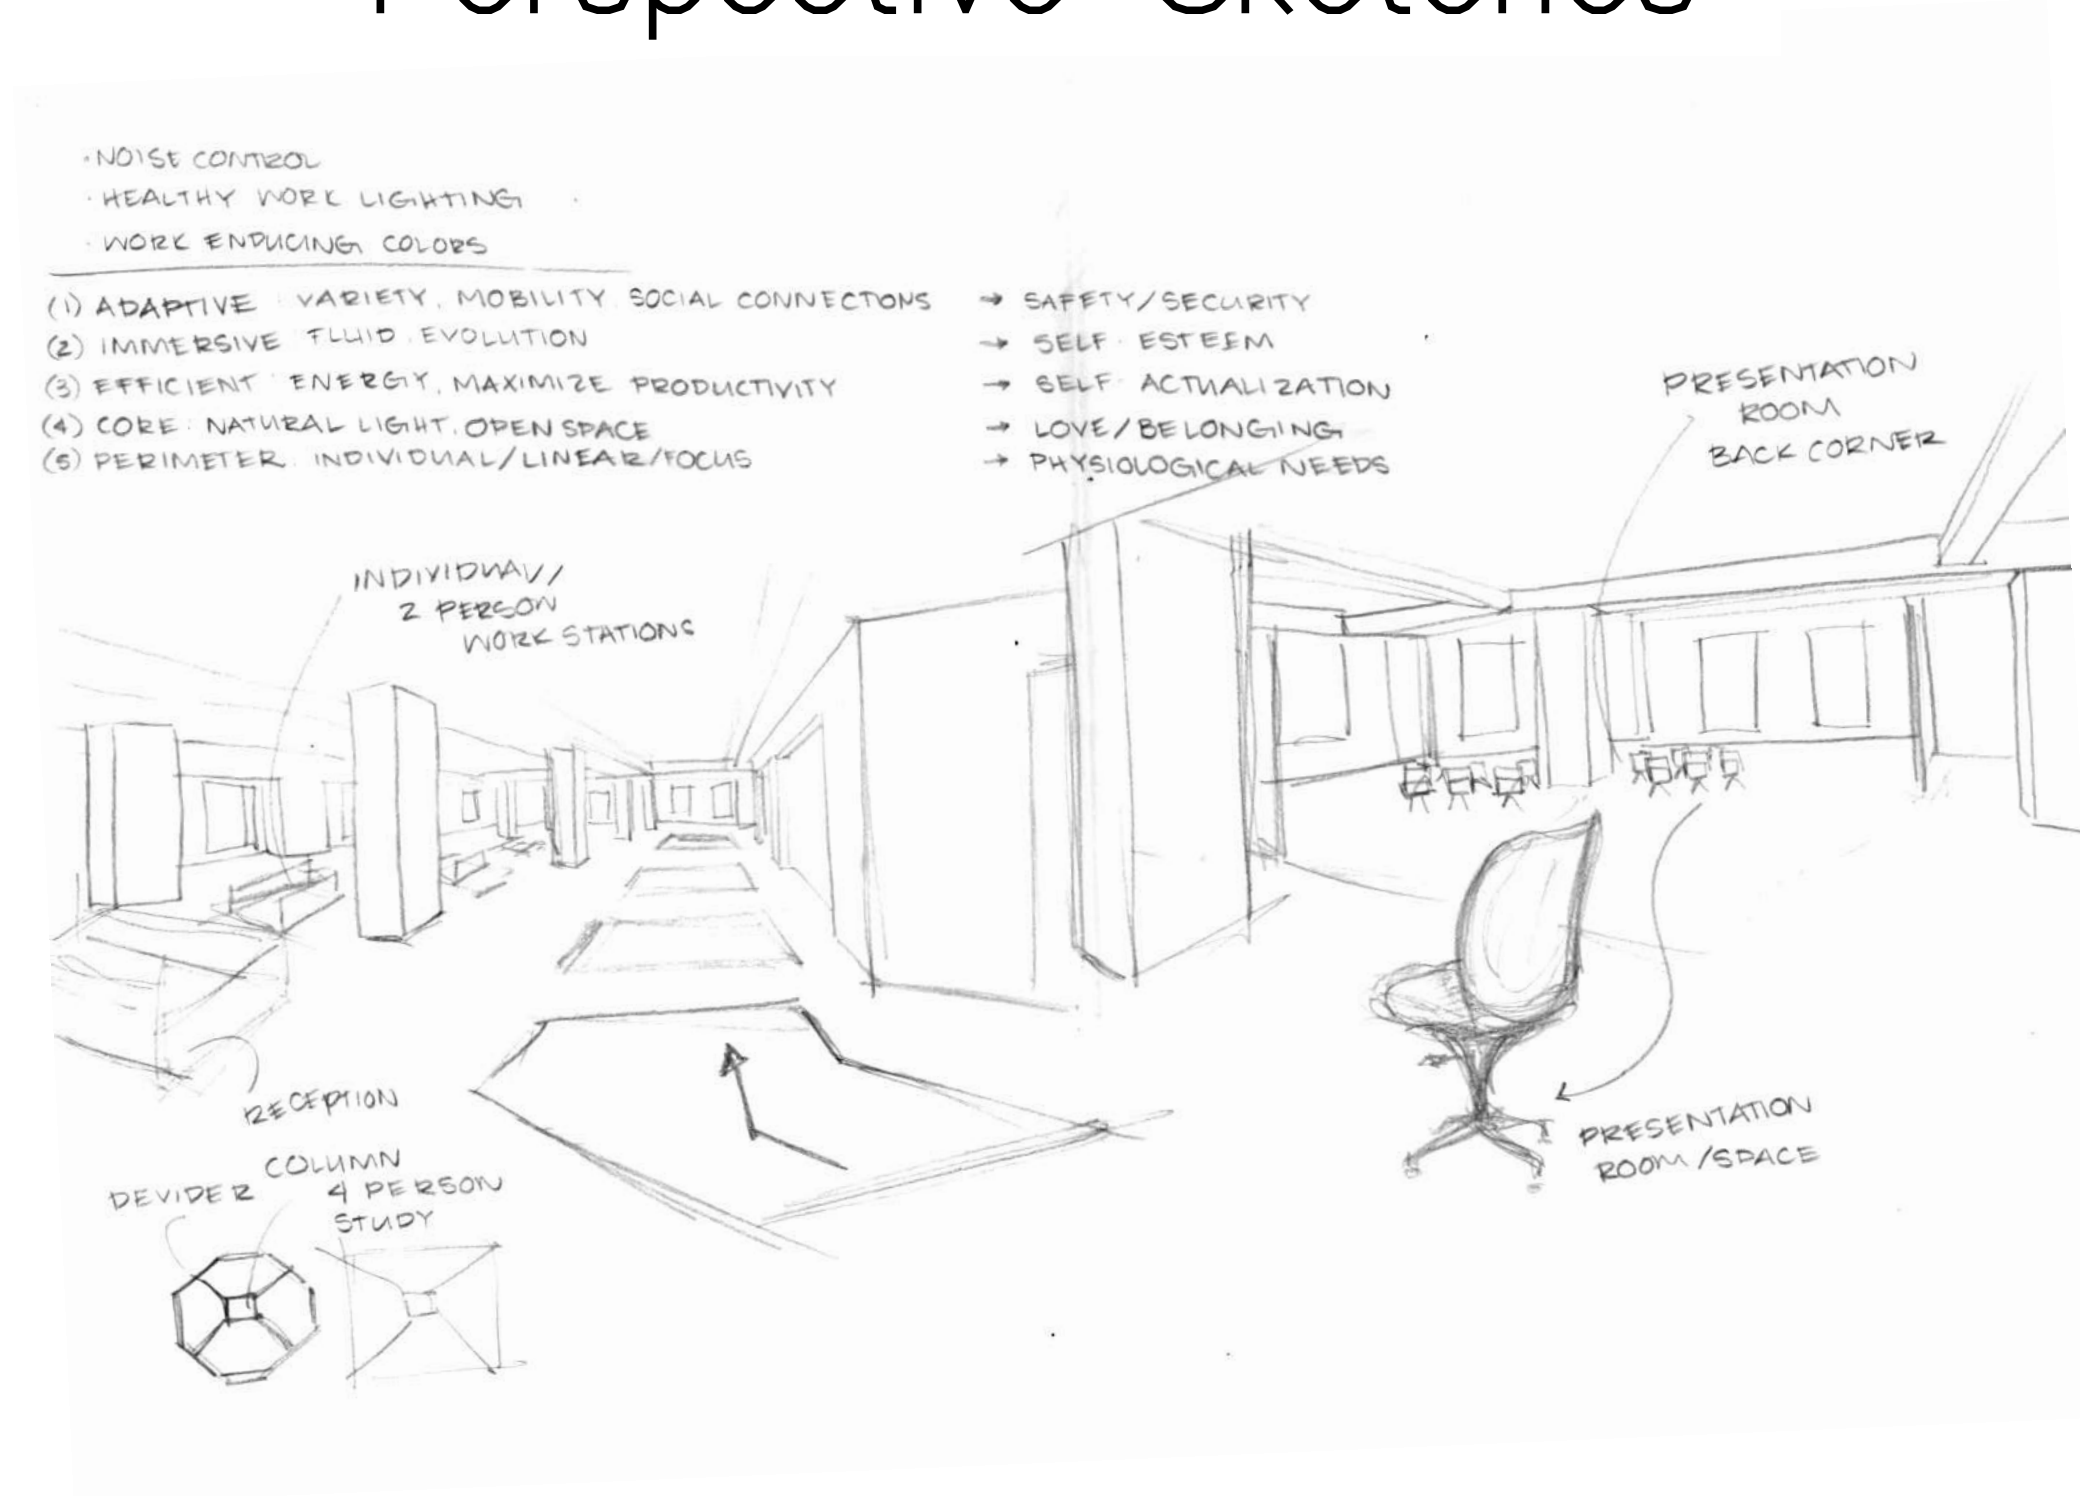 Perspective Sketches
· NOISE CONTROL
· HEALTHY WORK LIGHTING
· WORK ENDUCING COLORS
(1) ADAPTIVE : VARIETY, MOBILITY, SOCIAL CONNECTIONS → SAFETY/SECURITY
(2) IMMERSIVE FLUID, EVOLUTION → SELF · ESTEEM
(3) EFFICIENT : ENERGY, MAXIMIZE PRODUCTIVITY → SELF · ACTUALIZATION
(4) CORE : NATURAL LIGHT, OPEN SPACE → LOVE/BELONGING
(5) PERIMETER : INDIVIDUAL/LINEAR/FOCUS → PHYSIOLOGICAL NEEDS
PRESENTATION
ROOM
BACK CORNER
INDIVIDUAL/
2 PERSON
WORK STATIONS
RECEPTION
COLUMN
DEVIDER
4 PERSON
STUDY
PRESENTATION
ROOM/SPACE